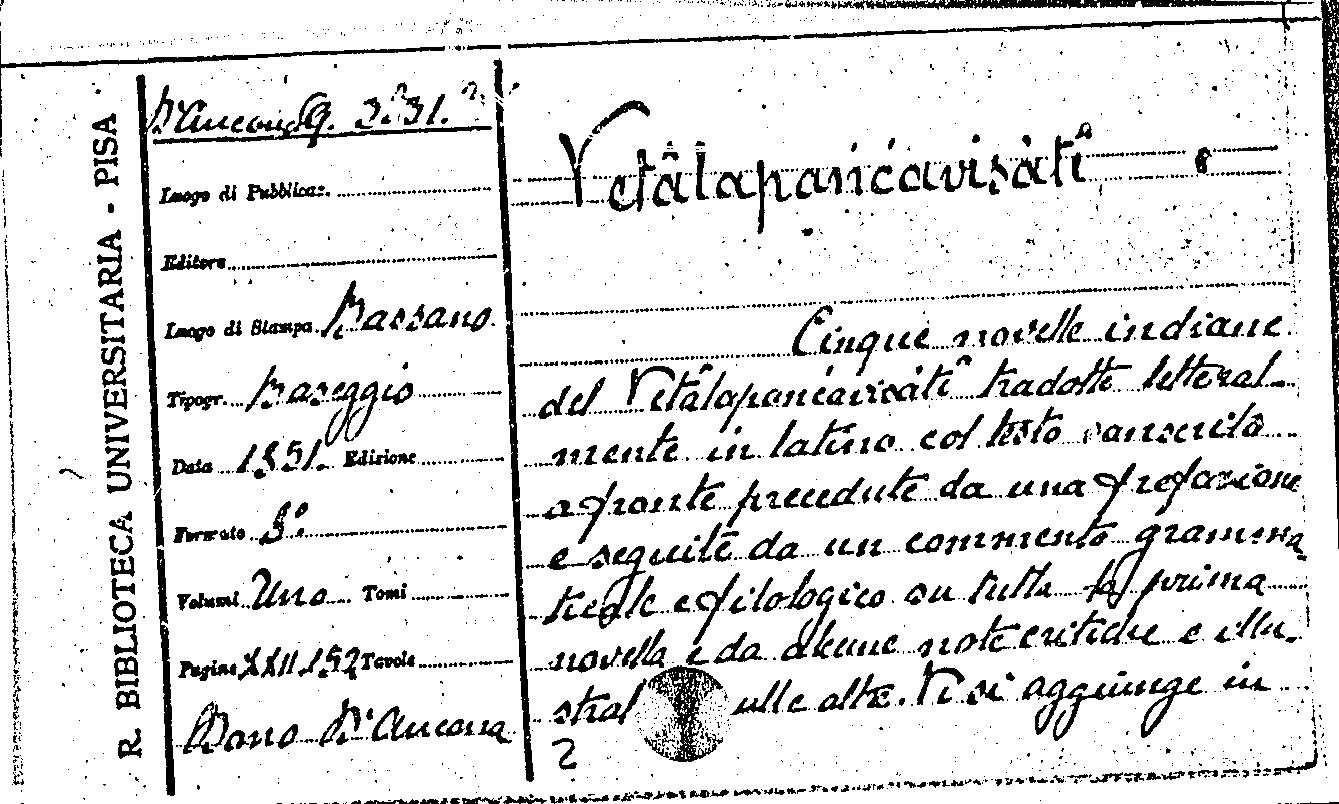 R. BIBLIOTECA UNIVERSITARIA - PISA
D'Ancona 9. 3. 31.
Luogo di Pubblicaz.
Editore
Luogo di Stampa Bassano
Tipogr. Baseggio
Data 1851. Edizione
Formato 8º
Volumi Uno Tomi
Pagine XXII.152 Tavole
Dono D'Ancona
Vetâlapańćavisâti
Cinque novelle indiane
del Vetâlapańćavisâti tradotte letteral-
mente in latino col testo sanscrito
a fronte precedute da una prefazione
e seguite da un commento gramma
ticale e filologico su tutta la prima
novella e da alcune note critiche e illu-
strat ulle altre. Vi si aggiunge in
2